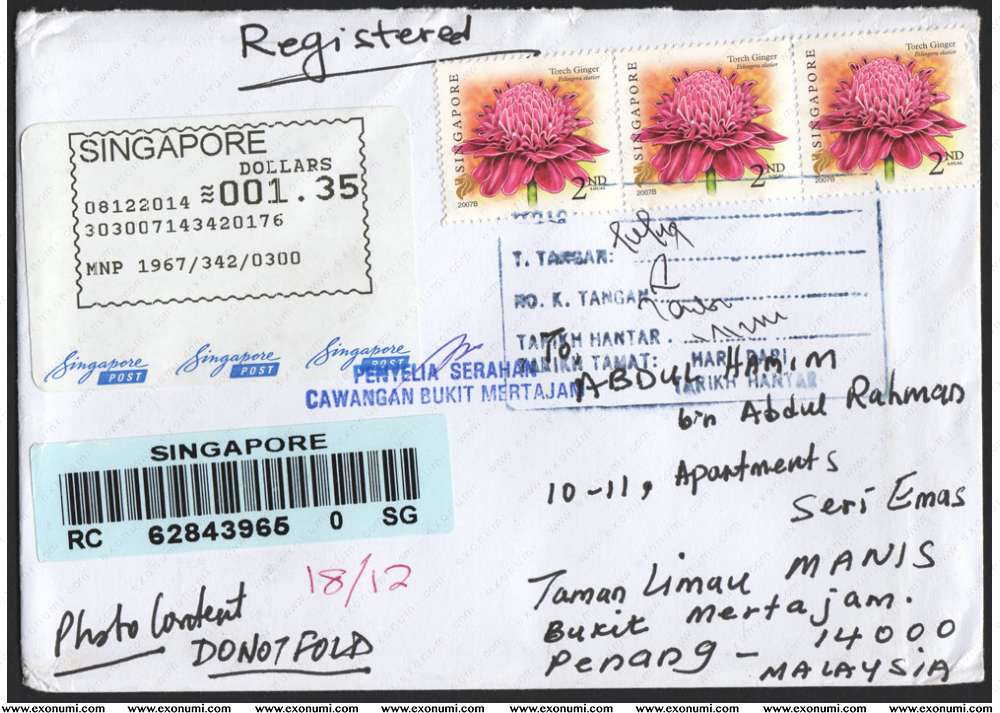 Registered
SINGAPORE
Torch Ginger
Etlingera elatior
2ND
LOCAL
2007B
SINGAPORE
Torch Ginger
Etlingera elatior
2ND
LOCAL
2007B
SINGAPORE
Torch Ginger
Etlingera elatior
2ND
LOCAL
2007B
SINGAPORE
DOLLARS
≈001.35
08122014
303007143420176
MNP 1967/342/0300
Singapore POST
Singapore POST
Singapore POST
T. TANGAN:
NO. K. TANGAN
TARIKH HANTAR
TARIKH TAMAT: HARI DARI
TARIKH HANTAR
PENYELIA SERAHAN
CAWANGAN BUKIT MERTAJAM
To
ABDUL HAMIM
bin Abdul Rahman
10-11, Apartments
Seri Emas
Taman Limau MANIS
Bukit Mertajam.
Penang - 14000
MALAYSIA
SINGAPORE
RC 62843965 0 SG
18/12
Photo Content
DO NOT FOLD
www.exonumi.com www.exonumi.com www.exonumi.com www.exonumi.com www.exonumi.com www.exonumi.com www.exonumi.com www.exonumi.com